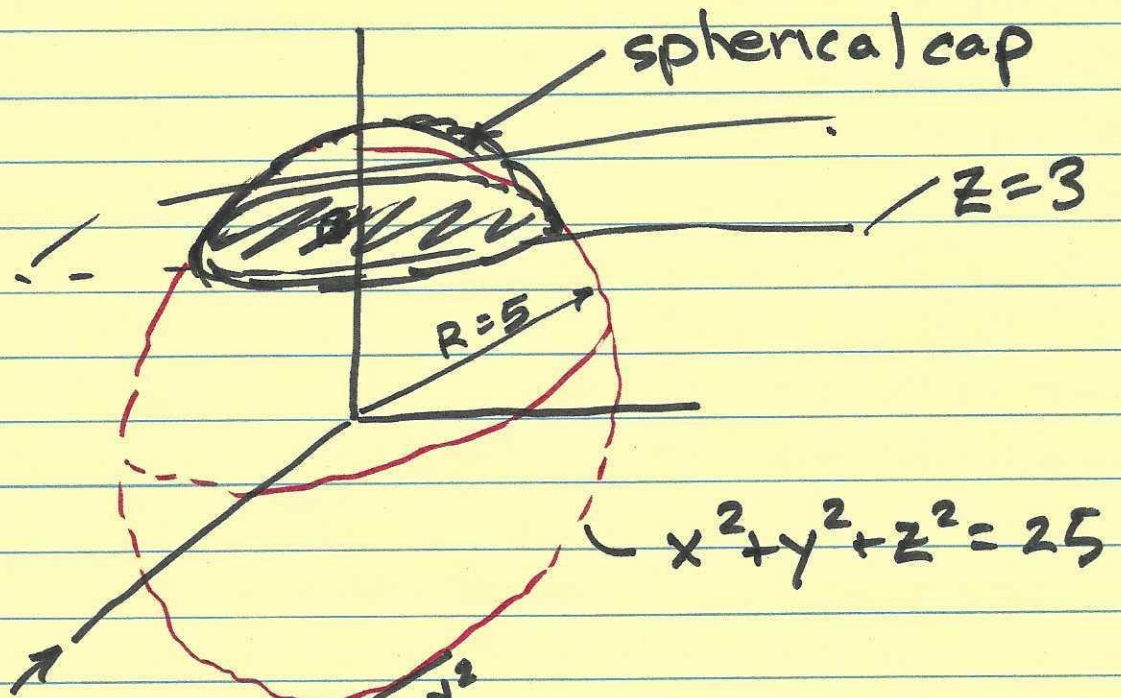 spherical cap
z=3
R=5
x²+y²+z²=25